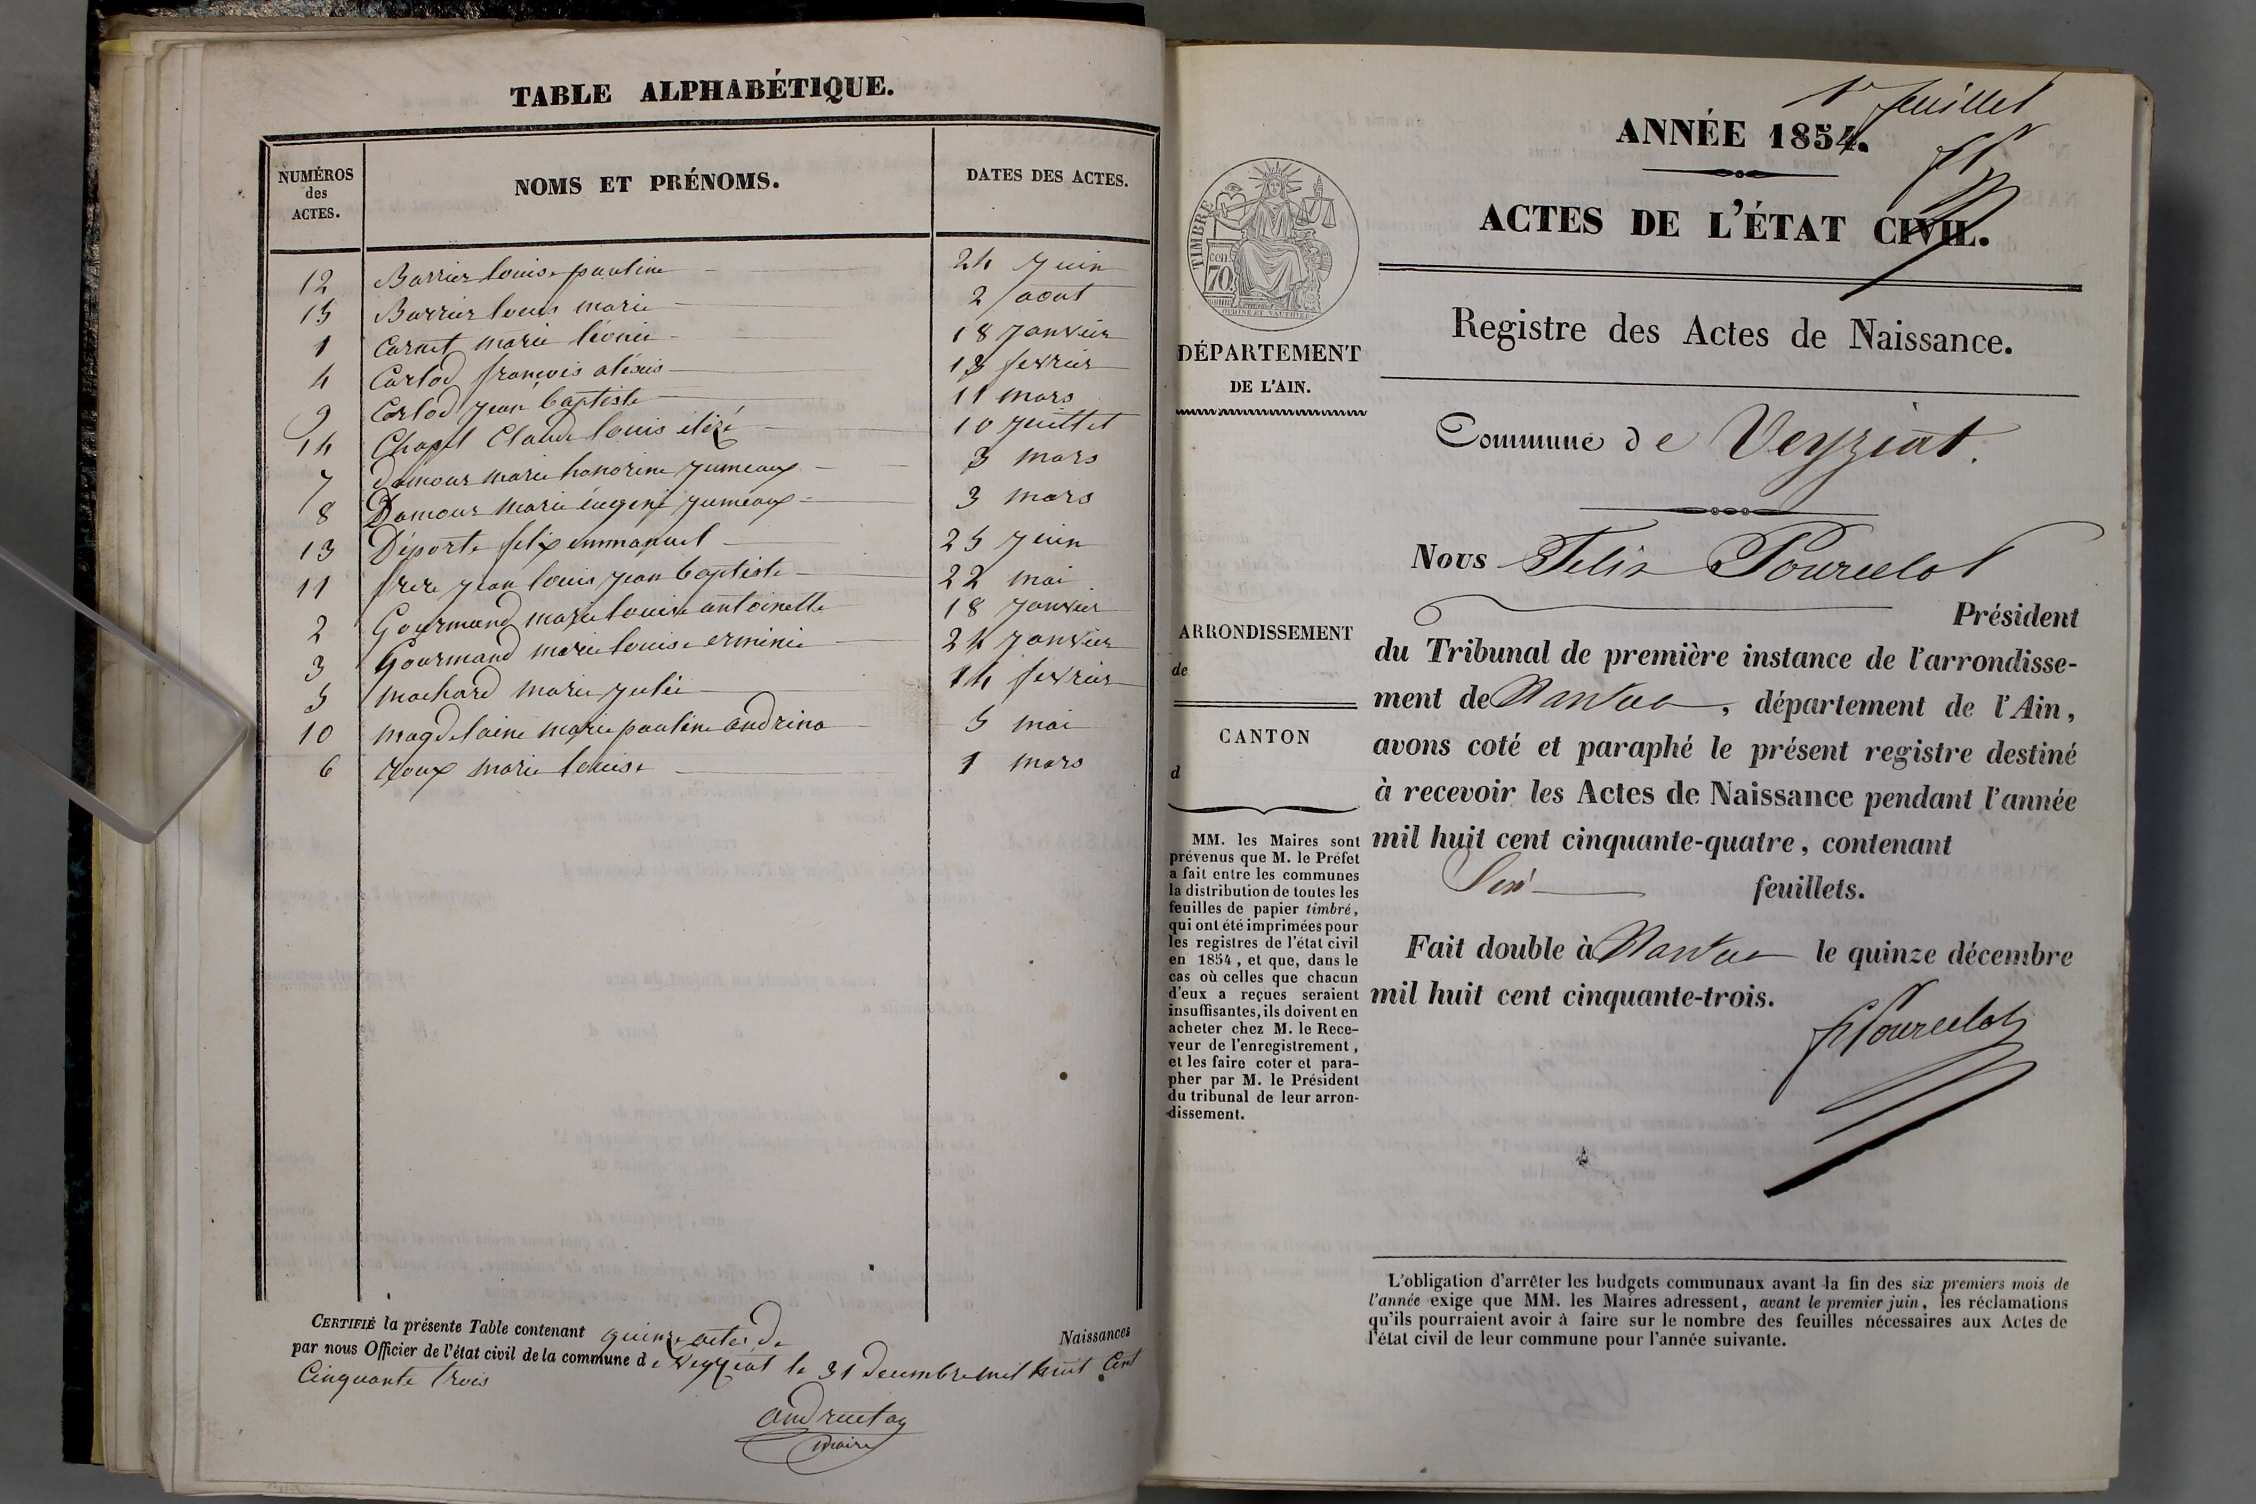 TABLE ALPHABÉTIQUE.
NUMÉROS des ACTES. NOMS ET PRÉNOMS. DATES DES ACTES.
12 Barrier louise pauline 24 Juin
15 Barrier louis marie 2 aout
1 Carnet marie léonie 18 Janvier
4 Carlod francois alexis 13 fevrier
9 Carlod Jean baptiste 11 mars
14 Chapel Claude louis 10 Juillet
7 damour marie honorine Jumeaux 3 mars
8 Damour marie éugeni Jumeaux 3 mars
13 Déporte felix emmanuel 25 Juin
11 frere Jean louis Jean baptiste 22 mai
2 Gourmand marie louise antoinette 18 Janvier
3 Gourmand marie louise erminie 24 Janvier
5 machard marie Julie 14 fevrier
10 magdelaine marie pauline andrina 5 mai
6 roux marie louise 1 mars
CERTIFIÉ la présente Table contenant quinze actes de Naissances
par nous Officier de l'état civil de la commune de Veyziat le 31 decembre mil huit Cent
Cinquante trois
maire
1r feuillet
ANNÉE 1854.
ACTES DE L'ÉTAT CIVIL.
Registre des Actes de Naissance.
Commune de Veyziat.
Nous Felix Pourcelot
Président
du Tribunal de première instance de l'arrondisse-
ment de Nantua, département de l'Ain,
avons coté et paraphé le présent registre destiné
à recevoir les Actes de Naissance pendant l'année
mil huit cent cinquante-quatre, contenant
Six feuillets.
Fait double à Nantua le quinze décembre
mil huit cent cinquante-trois.
f Pourcelot
TIMBRE
70
DÉPARTEMENT
DE L'AIN.
ARRONDISSEMENT
de
CANTON
d
MM. les Maires sont
prévenus que M. le Préfet
a fait entre les communes
la distribution de toutes les
feuilles de papier timbré,
qui ont été imprimées pour
les registres de l'état civil
en 1854, et que, dans le
cas où celles que chacun
d'eux a reçues seraient
insuffisantes, ils doivent en
acheter chez M. le Rece-
veur de l'enregistrement,
et les faire coter et para-
pher par M. le Président
du tribunal de leur arron-
dissement.
L'obligation d'arrêter les budgets communaux avant la fin des six premiers mois de
l'année exige que MM. les Maires adressent, avant le premier juin, les réclamations
qu'ils pourraient avoir à faire sur le nombre des feuilles nécessaires aux Actes de
l'état civil de leur commune pour l'année suivante.